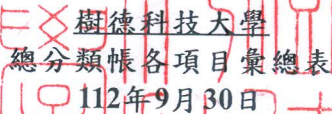 樹德科技大學
總分類帳各項目彙總表
112年9月30日